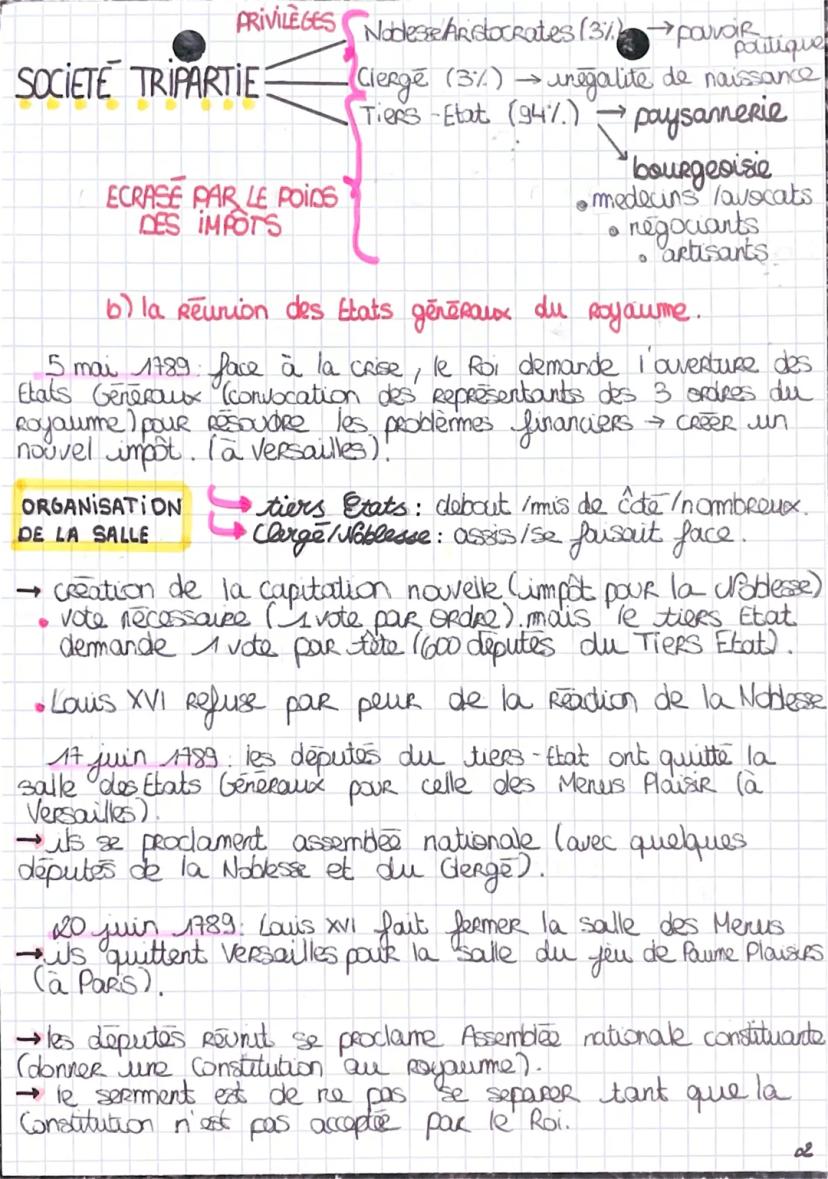 PRIVILÈGES
Noblesse Aristocrates (3%) → pouvoir politique
SOCIETÉ TRIPARTIE
Clergé (3%) → inégalité de naissance
Tiers-Etat (94%) → paysannerie
bourgeoisie
ECRASÉ PAR LE POIDS
DES IMPÔTS
• medecins /avocats
• négociants
• artisants
b) la réunion des Etats généraux du royaume.
5 mai 1789: face à la crise, le Roi demande l'ouverture des
Etats Généraux (convocation des représentants des 3 ordres du
royaume) pour résoudre les problèmes financiers → créer un
nouvel impôt. (à Versailles).
ORGANISATION
DE LA SALLE
→ tiers Etats: debout /mis de côté /nombreux.
→ Clergé/Noblesse: assis/se faisait face.
→ création de la capitation nouvelle (impôt pour la Noblesse)
• vote nécessaire (1 vote par ordre). mais le tiers Etat
demande 1 vote par tête (600 députés du Tiers Etat).
• Louis XVI refuse par peur de la réaction de la Noblesse
17 juin 1789: les députés du tiers-Etat ont quitté la
salle des Etats Généraux pour celle des Menus Plaisir (à
Versailles).
→ ils se proclament assemblée nationale (avec quelques
députés de la Noblesse et du Clergé).
20 juin 1789: Louis XVI fait fermer la salle des Menus
→ ils quittent Versailles pour la salle du jeu de Paume Plaisirs
(à Paris).
→ les députés réunit se proclame Assemblée nationale constituante
(donner une Constitution au royaume).
→ le serment est de ne pas se separer tant que la
Constitution n'est pas acceptée par le Roi.
02